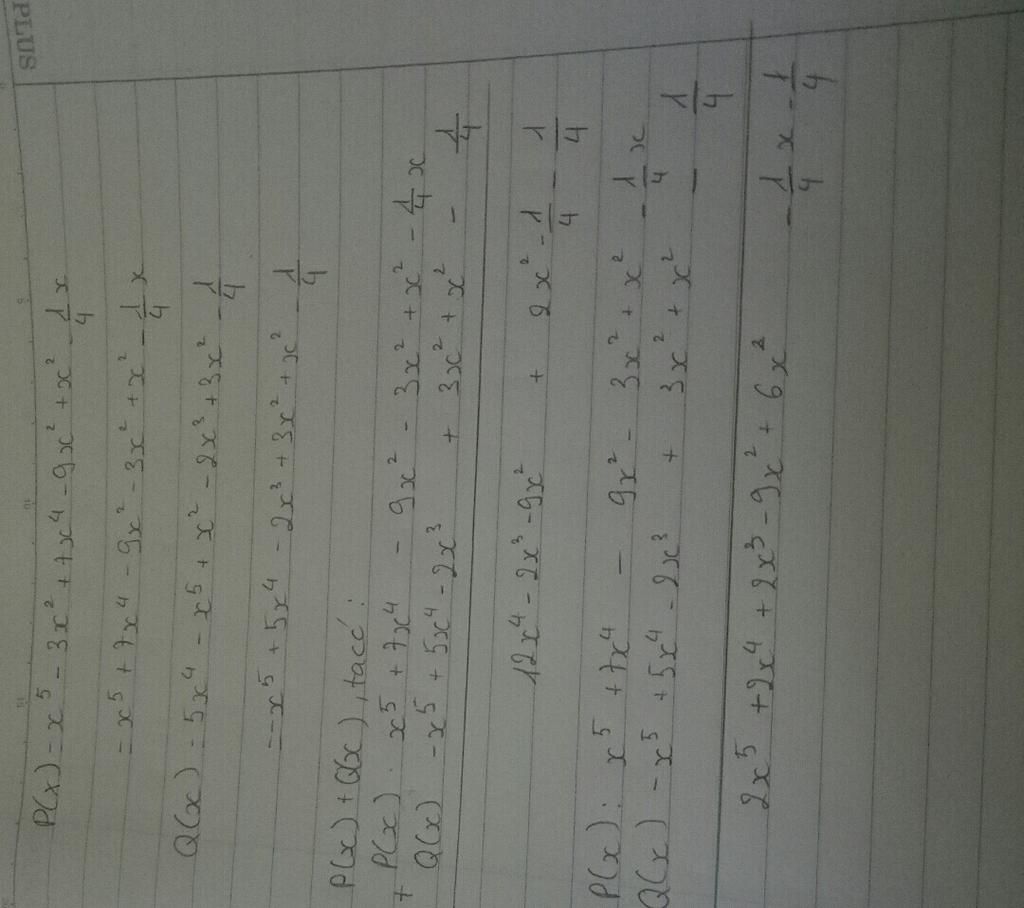 PLUS
P(x) = x⁵ - 3x² + 7x⁴ - 9x² + x² - 1/4 x
= x⁵ + 7x⁴ - 9x² - 3x² + x² - 1/4 x
Q(x) = 5x⁴ - x⁵ + x² - 2x³ + 3x² - 1/4
= -x⁵ + 5x⁴ - 2x³ + 3x² + x² - 1/4
P(x) + Q(x), ta có:
+ P(x): x⁵ + 7x⁴ - 9x² - 3x² + x² - 1/4 x
Q(x) -x⁵ + 5x⁴ - 2x³ + 3x² + x² - 1/4
12x⁴ - 2x³ - 9x² + 2x² - 1/4 - 1/4
P(x): x⁵ + 7x⁴ - 9x² - 3x² + x² - 1/4 x
Q(x) - x⁵ + 5x⁴ - 2x³ + 3x² + x² - 1/4
2x⁵ + 2x⁴ + 2x³ - 9x² + 6x² - 1/4 x - 1/4